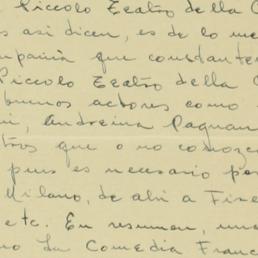 Piccolo Teatro della C
s asi dicen, es de lo me
mpañia que constante
Piccolo Teatro della C
buenos actores como
ni, Andreina Pagnan
tros que o no conozc
pues es necesario po
Milano, de ahi a Fire
etc. En resumen, una
no La Comedia Franc